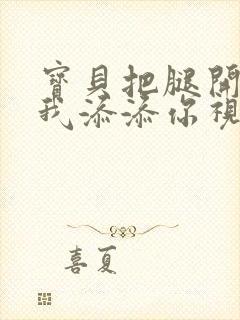 寶貝把腿開
我添添你視
喜夏